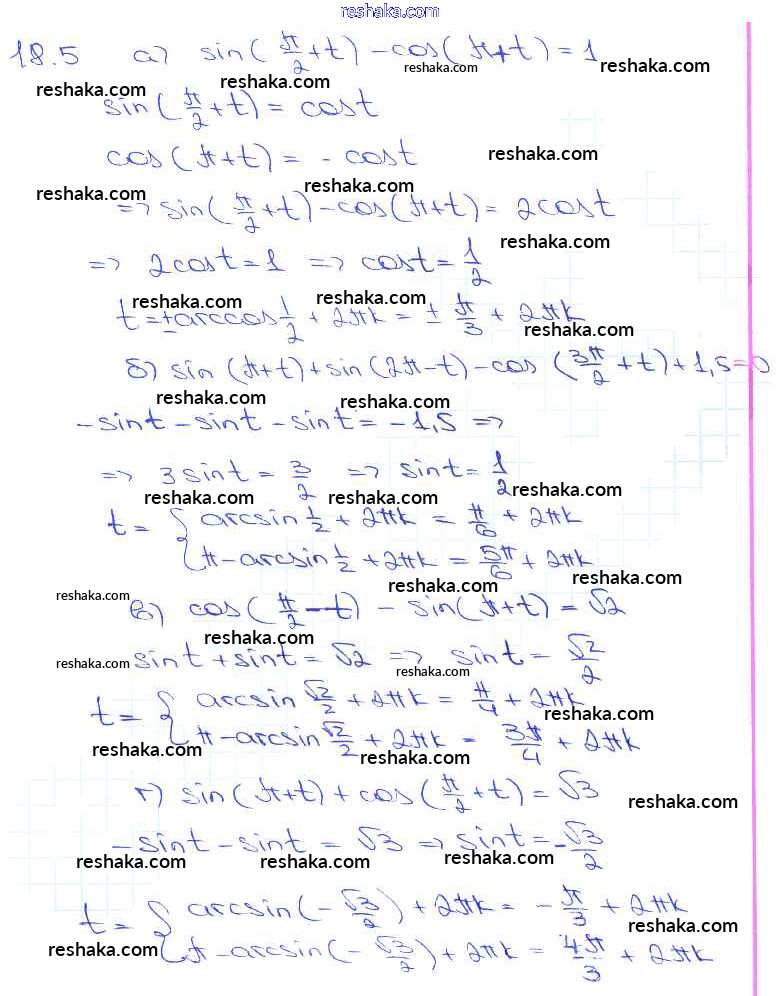 reshaka.com
18.5 а) sin(π/2 + t) - cos(π + t) = 1
reshaka.com reshaka.com reshaka.com reshaka.com
sin(π/2 + t) = cost
cos(π + t) = - cost
reshaka.com
reshaka.com reshaka.com
=> sin(π/2 + t) - cos(π + t) = 2cost
reshaka.com
=> 2cost = 1 => cost = 1/2
reshaka.com reshaka.com
t = ± arccos 1/2 + 2πk = ± π/3 + 2πk
reshaka.com
б) sin(π + t) + sin(2π - t) - cos(3π/2 + t) + 1,5 = 0
reshaka.com reshaka.com
- sint - sint - sint = -1,5 =>
=> 3sint = 3/2 => sint = 1/2
reshaka.com reshaka.com reshaka.com
t = { arcsin 1/2 + 2πk = π/6 + 2πk
π - arcsin 1/2 + 2πk = 5π/6 + 2πk
reshaka.com reshaka.com
reshaka.com
в) cos(π/2 - t) - sin(π + t) = √2
reshaka.com
reshaka.com reshaka.com
sint + sint = √2 => sint = √2/2
t = { arcsin √2/2 + 2πk = π/4 + 2πk
reshaka.com
π - arcsin √2/2 + 2πk = 3π/4 + 2πk
reshaka.com reshaka.com
г) sin(π + t) + cos(π/2 + t) = √3
reshaka.com
- sint - sint = √3 => sint = -√3/2
reshaka.com reshaka.com reshaka.com
t = { arcsin(-√3/2) + 2πk = - π/3 + 2πk
π - arcsin(-√3/2) + 2πk = 4π/3 + 2πk
reshaka.com reshaka.com reshaka.com